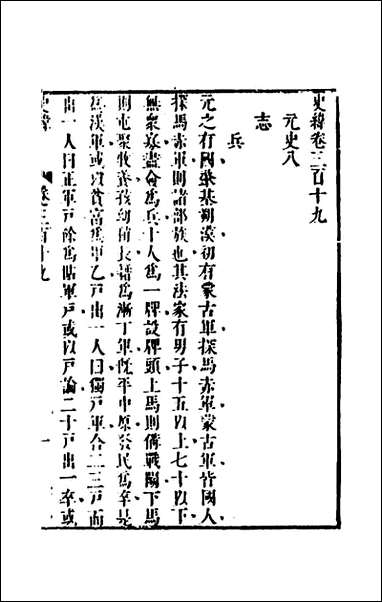 史緯卷三百十九
元史八
志
兵
元之有國肇基朔漠初有蒙古軍探馬赤軍蒙古軍皆國人
探馬赤軍則諸部族也其法家有男子十五以上七十以下
無眾寡盡僉為兵十人為一牌設牌頭上馬則備戰鬪下馬
則屯聚牧養孩幼稍長籍為漸丁軍既平中原發民為卒是
為漢軍或以貧富為甲乙戶出一人曰獨戶軍合二三戶而
出一人曰正軍戶餘為貼軍戶或以戶論二十戶出一卒或
史緯
卷三百十九
一